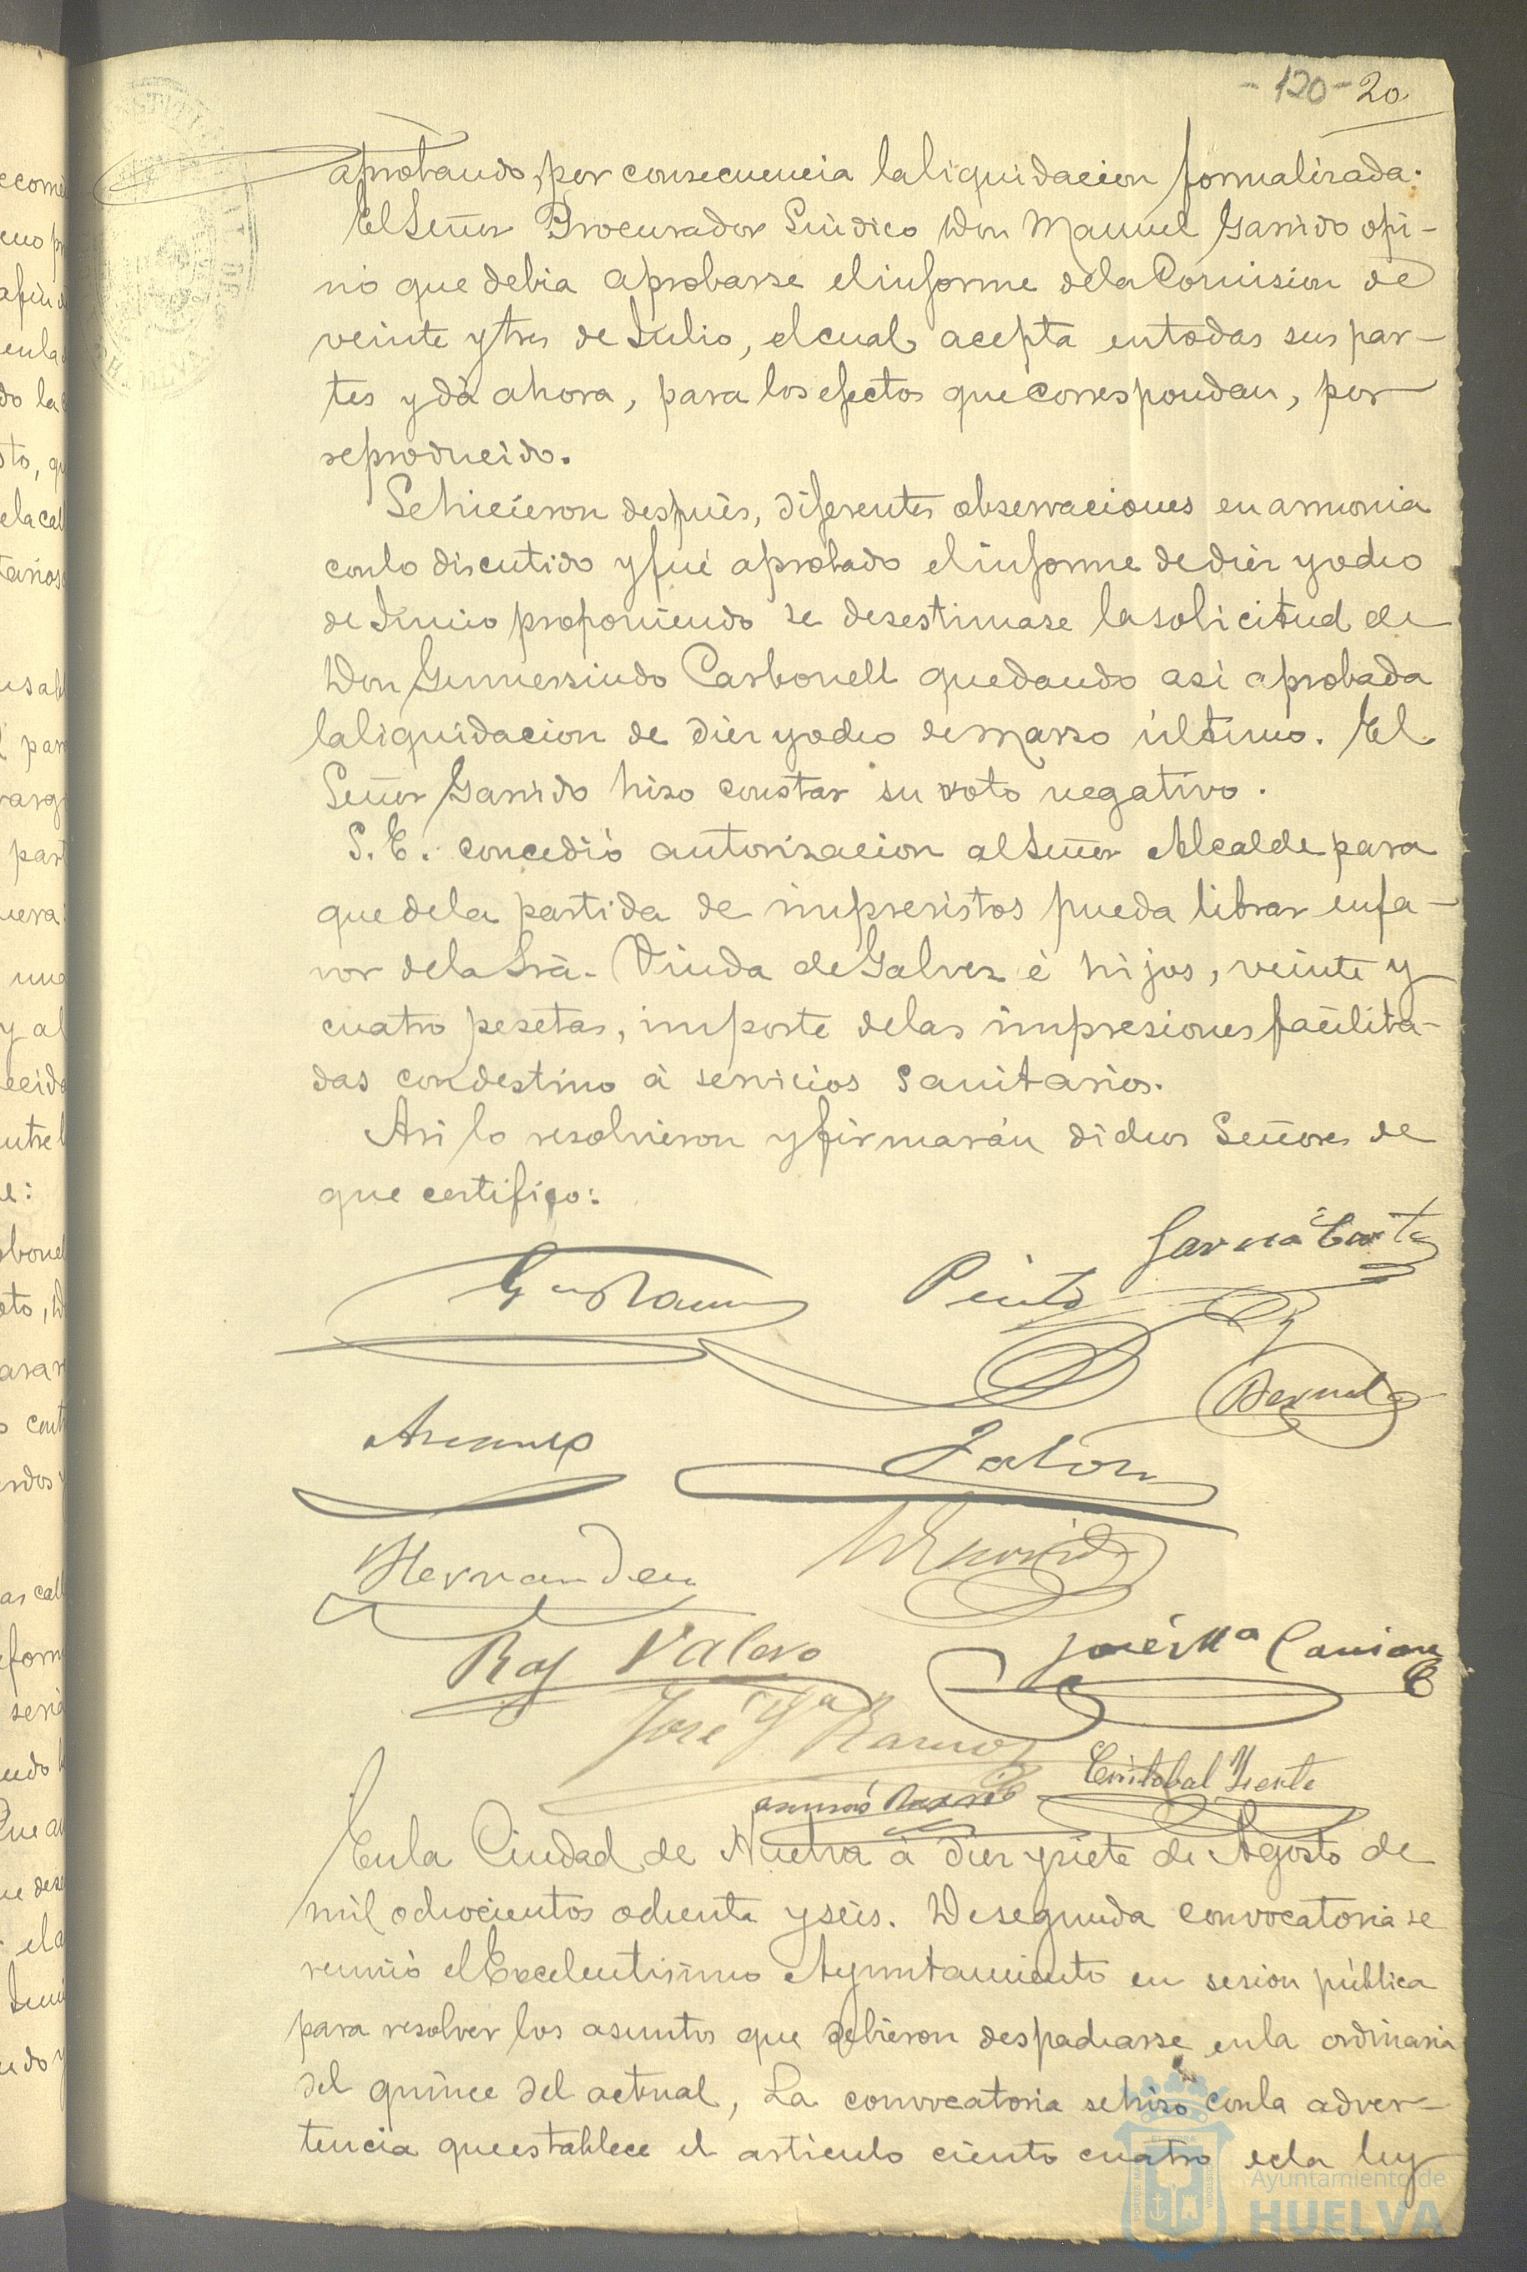 -120- 20
aprobando, por consecuencia la liquidacion formalizada.
El Señor Procurador Sindico Don Manuel Garrido opi-
nó que debia aprobarse el informe de la Comision de
veinte y tres de Julio, el cual acepta en todas sus par-
tes y dá ahora, para los efectos que correspondan, por
reproducido.
Se hicieron después, diferentes observaciones en armonia
con lo discutido y fué aprobado el informe de diez y ocho
de Junio proponiendo se desestimase la solicitud de
Don Gumersindo Carbonell quedando asi aprobada
la liquidacion de diez y ocho de Marzo último. El
Señor Garrido hizo constar su voto negativo.
S.E. concedió autorizacion al Señor Alcalde para
que de la partida de imprevistos pueda librar en fa-
vor de la Srã. Viuda de Galvez é hijos, veinte y
cuatro pesetas, importe de las impresiones facilita-
das con destino á servicios sanitarios.
Asi lo resolvieron y firmarán dichos Señores de
que certifico:
Garcia
Pinto
Bernal
Jalon
Hernandez
Raf Valero
José Mª
José Mª Ramos
Cristobal
En la Ciudad de Huelva á diez y siete de Agosto de
mil ochocientos ochenta y seis. De segunda convocatoria se
reunió el Excelentisimo Ayuntamiento en sesion pública
para resolver los asuntos que debieron despacharse en la ordinaria
del quince del actual, La convocatoria se hizo con la adver-
tencia que establece el articulo ciento cuatro de la ley
Ayuntamiento de
HUELVA